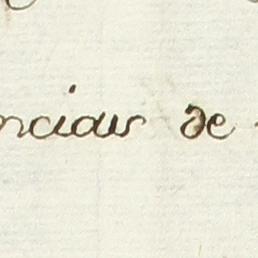 nciais de